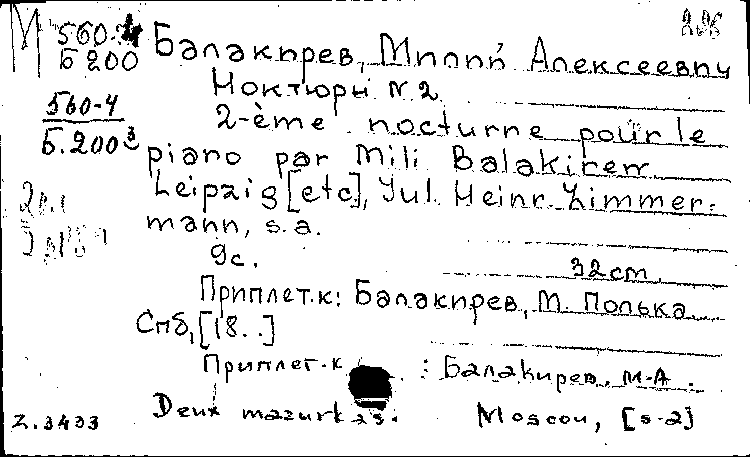 М 560-4 Б 200
Балакирев, Милий Алексеевич
Ноктюрн N2
560-4
2-ème nocturne pour le
Б.200³
piano par Mili Balakirew
Leipzig [etc], Jul. Heinr. Zimmer-
mann, s.a.
9с.
32cm.
Приплет.к: Балакирев, М. Полька
Спб, [18..]
Приплет.к : Балакирев, М.А.
Deux mazurkas. Moscou, [s.a]
Z.3433